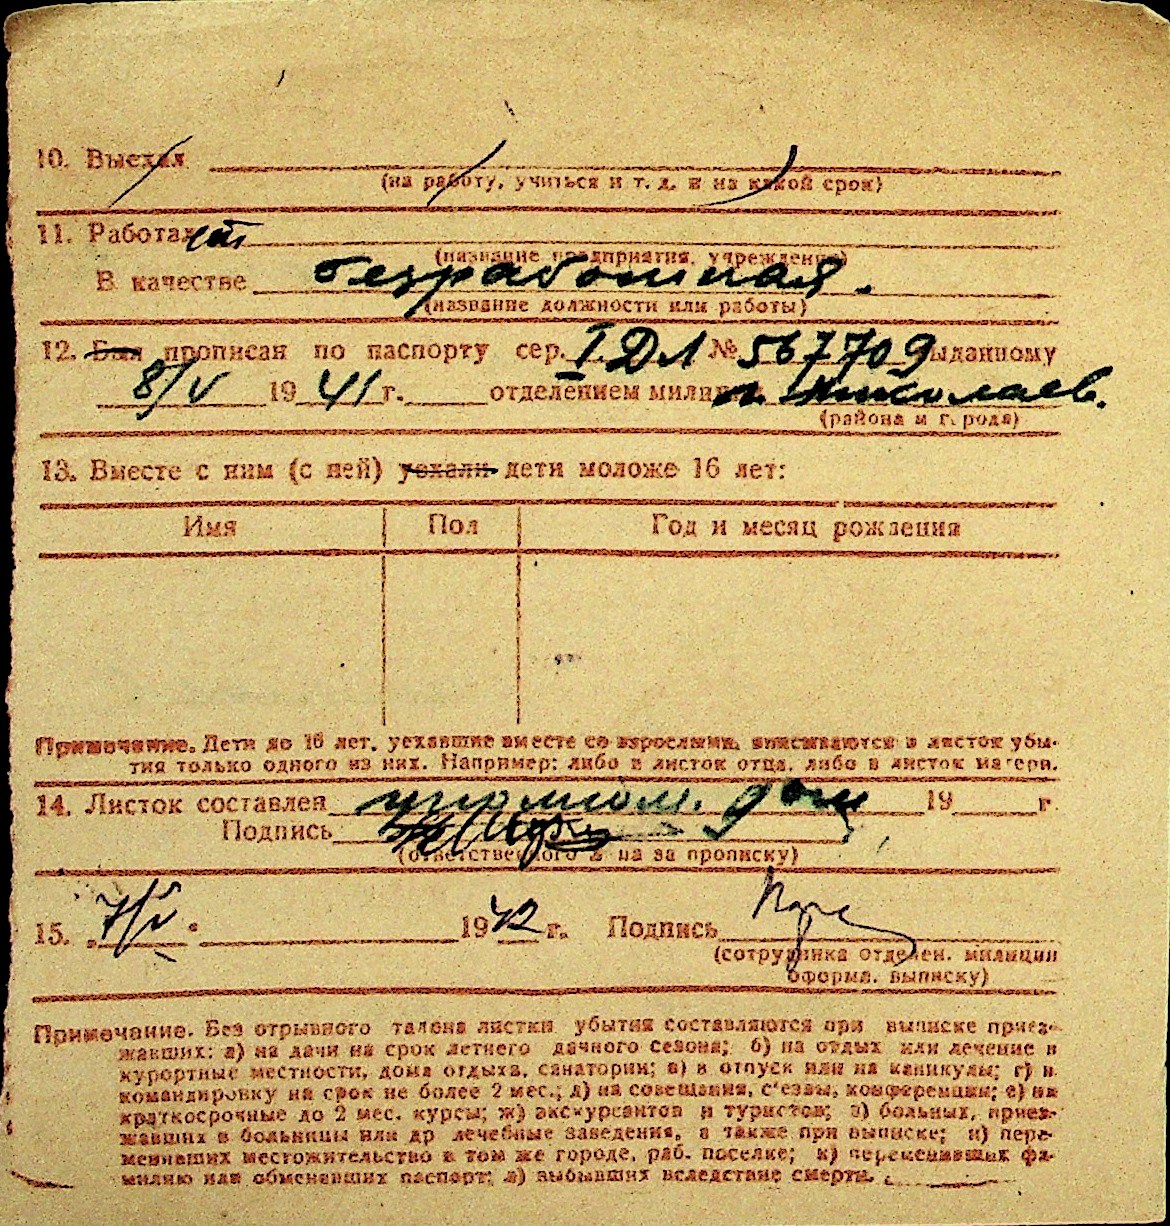 10. Выехал
(на работу, учиться и т. д. и на какой срок)
11. Работает
(название предприятия, учреждения)
В качестве безработная.
(название должности или работы)
12. Был прописан по паспорту сер. I ДЛ № 567709 выданному
8/V 1941 г. отделением милиции г. Николаев.
(района и города)
13. Вместе с ним (с ней) уехали дети моложе 16 лет:
Имя Пол Год и месяц рождения
Примечание. Дети до 16 лет, уехавшие вместе со взрослыми, вписываются в листок убы-
тия только одного из них. Например: либо в листок отца, либо в листок матери.
14. Листок составлен 19 г.
Подпись
(ответственного за прописку)
15. 7/V 1942 г. Подпись
(сотрудника отделен. милиции
оформ. выписку)
Примечание. Без отрывного талона листки убытия составляются при выписке приез-
жавших: а) на дачи на срок летнего дачного сезона; б) на отдых или лечение в
курортные местности, дома отдыха, санатории; в) в отпуск или на каникулы; г) в
командировку на срок не более 2 мес.; д) на совещания, с'езды, конференции; е) на
краткосрочные до 2 мес. курсы; ж) экскурсантов и туристов; з) больных, приез-
жавших в больницы или др лечебные заведения, а также при выписке; и) пере-
менивших местожительство в том же городе, раб. поселке; к) переменивших фа-
милию или обменявших паспорт; л) выбывших вследствие смерти.